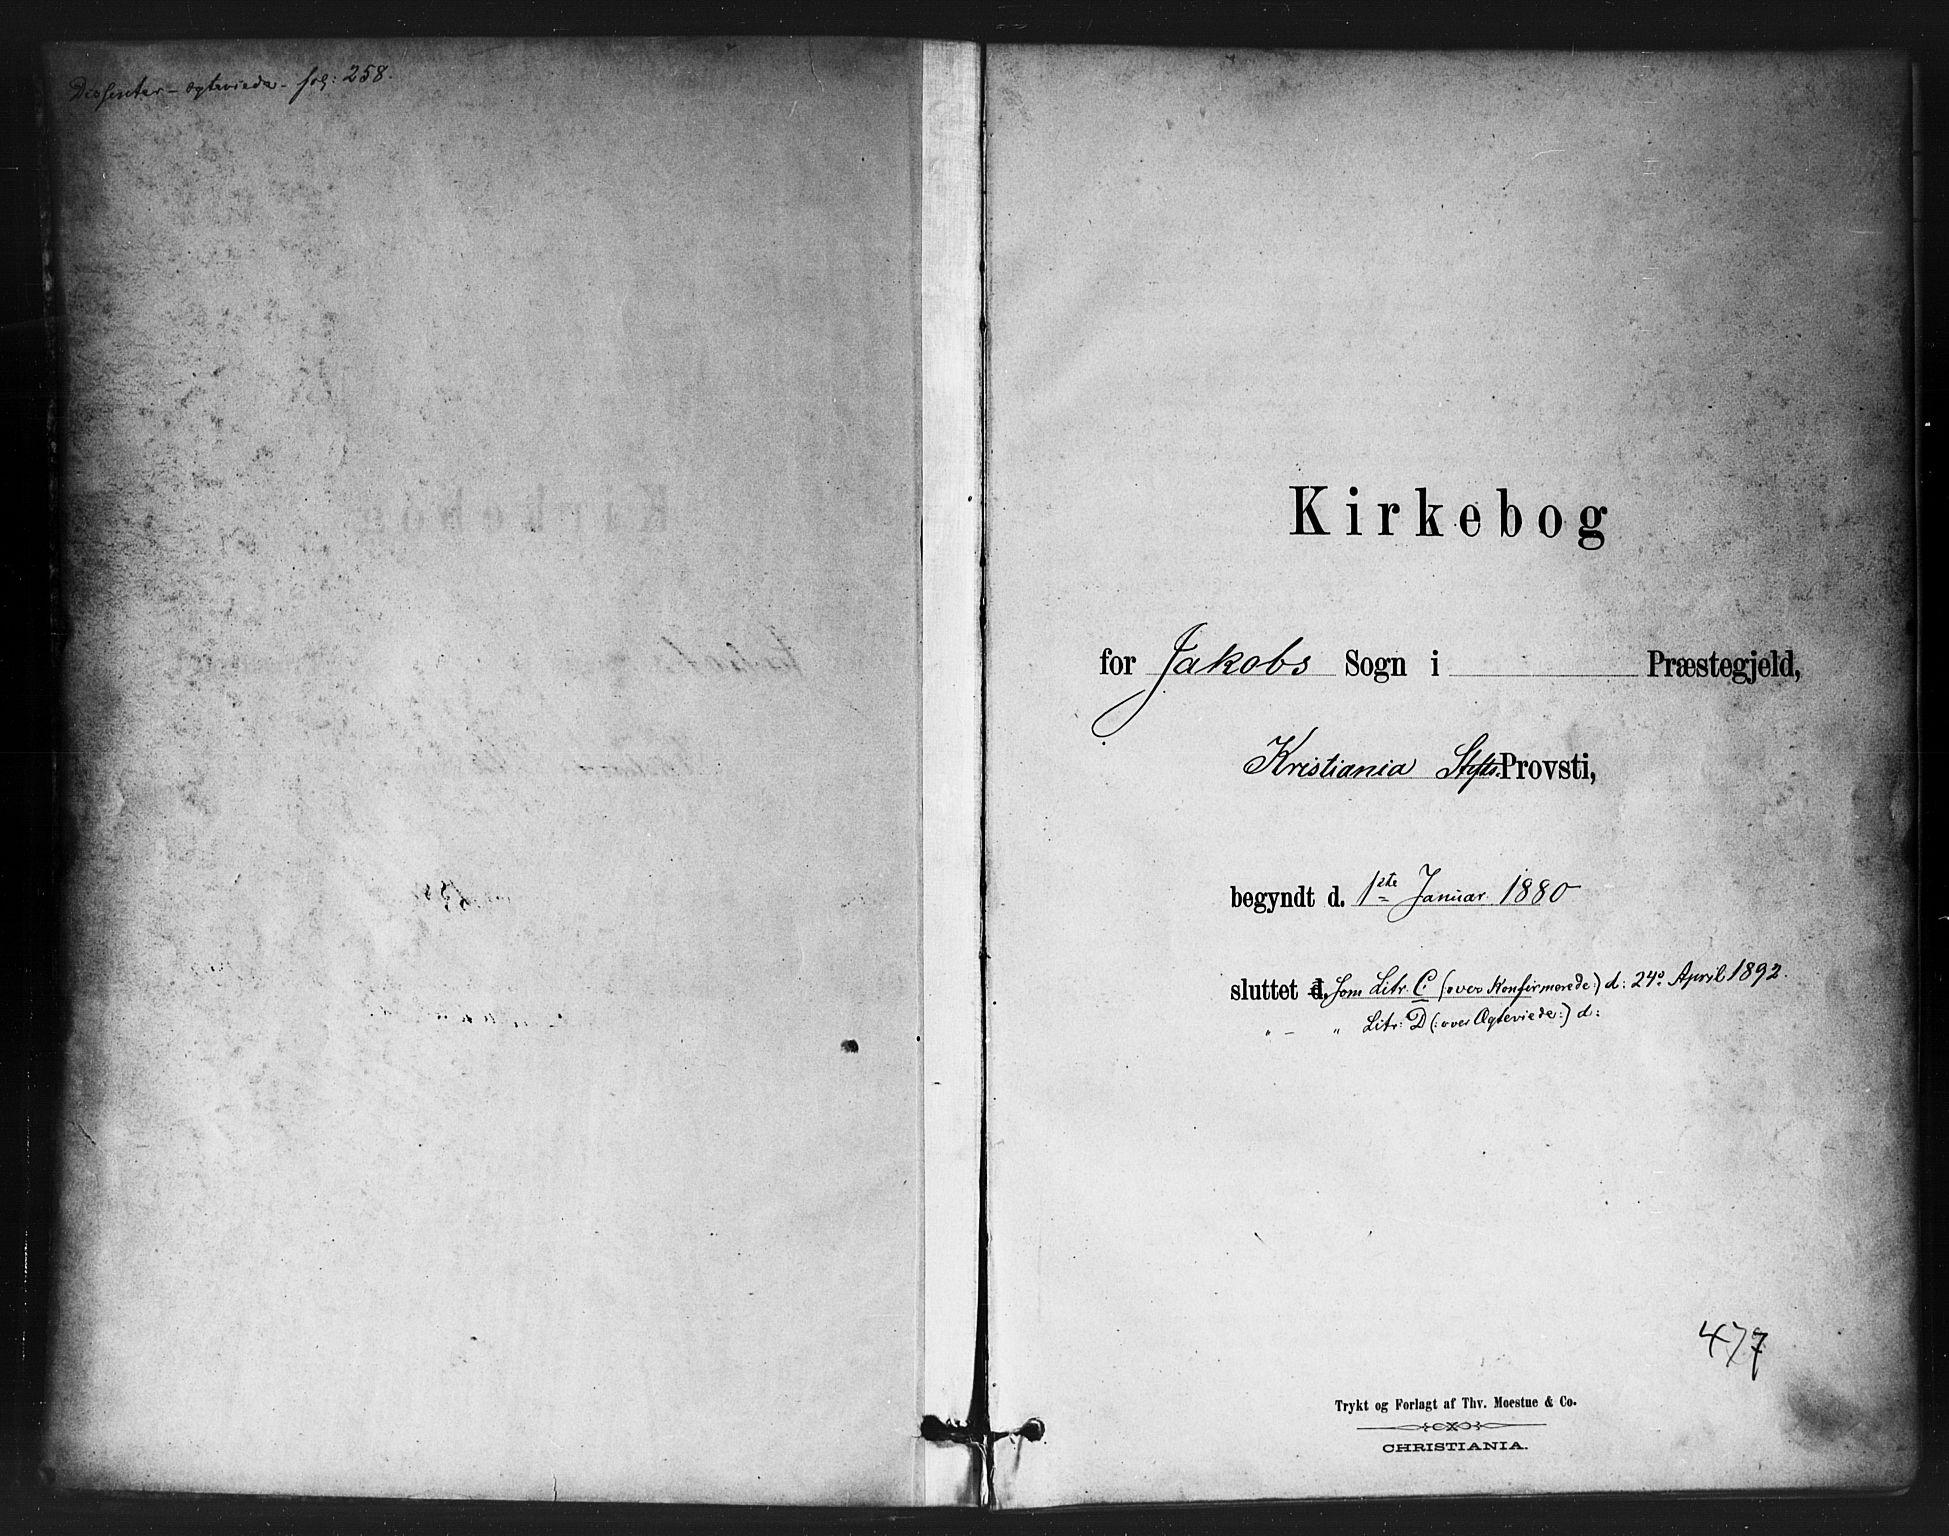 Dissenter-Ægteviede. fol: 258.
Kirkebog
for Jakobs Sogn i Præstegjeld,
Kristiania Stifts Provsti,
begyndt d. 1ste Januar 1880
sluttet d. som Litr. C (: over Konfirmerede :) d: 24de April 1892.
" — " Litr: D (: over Ægteviede :) d:
477
Trykt og Forlagt af Thv. Moestue & Co.
CHRISTIANIA.